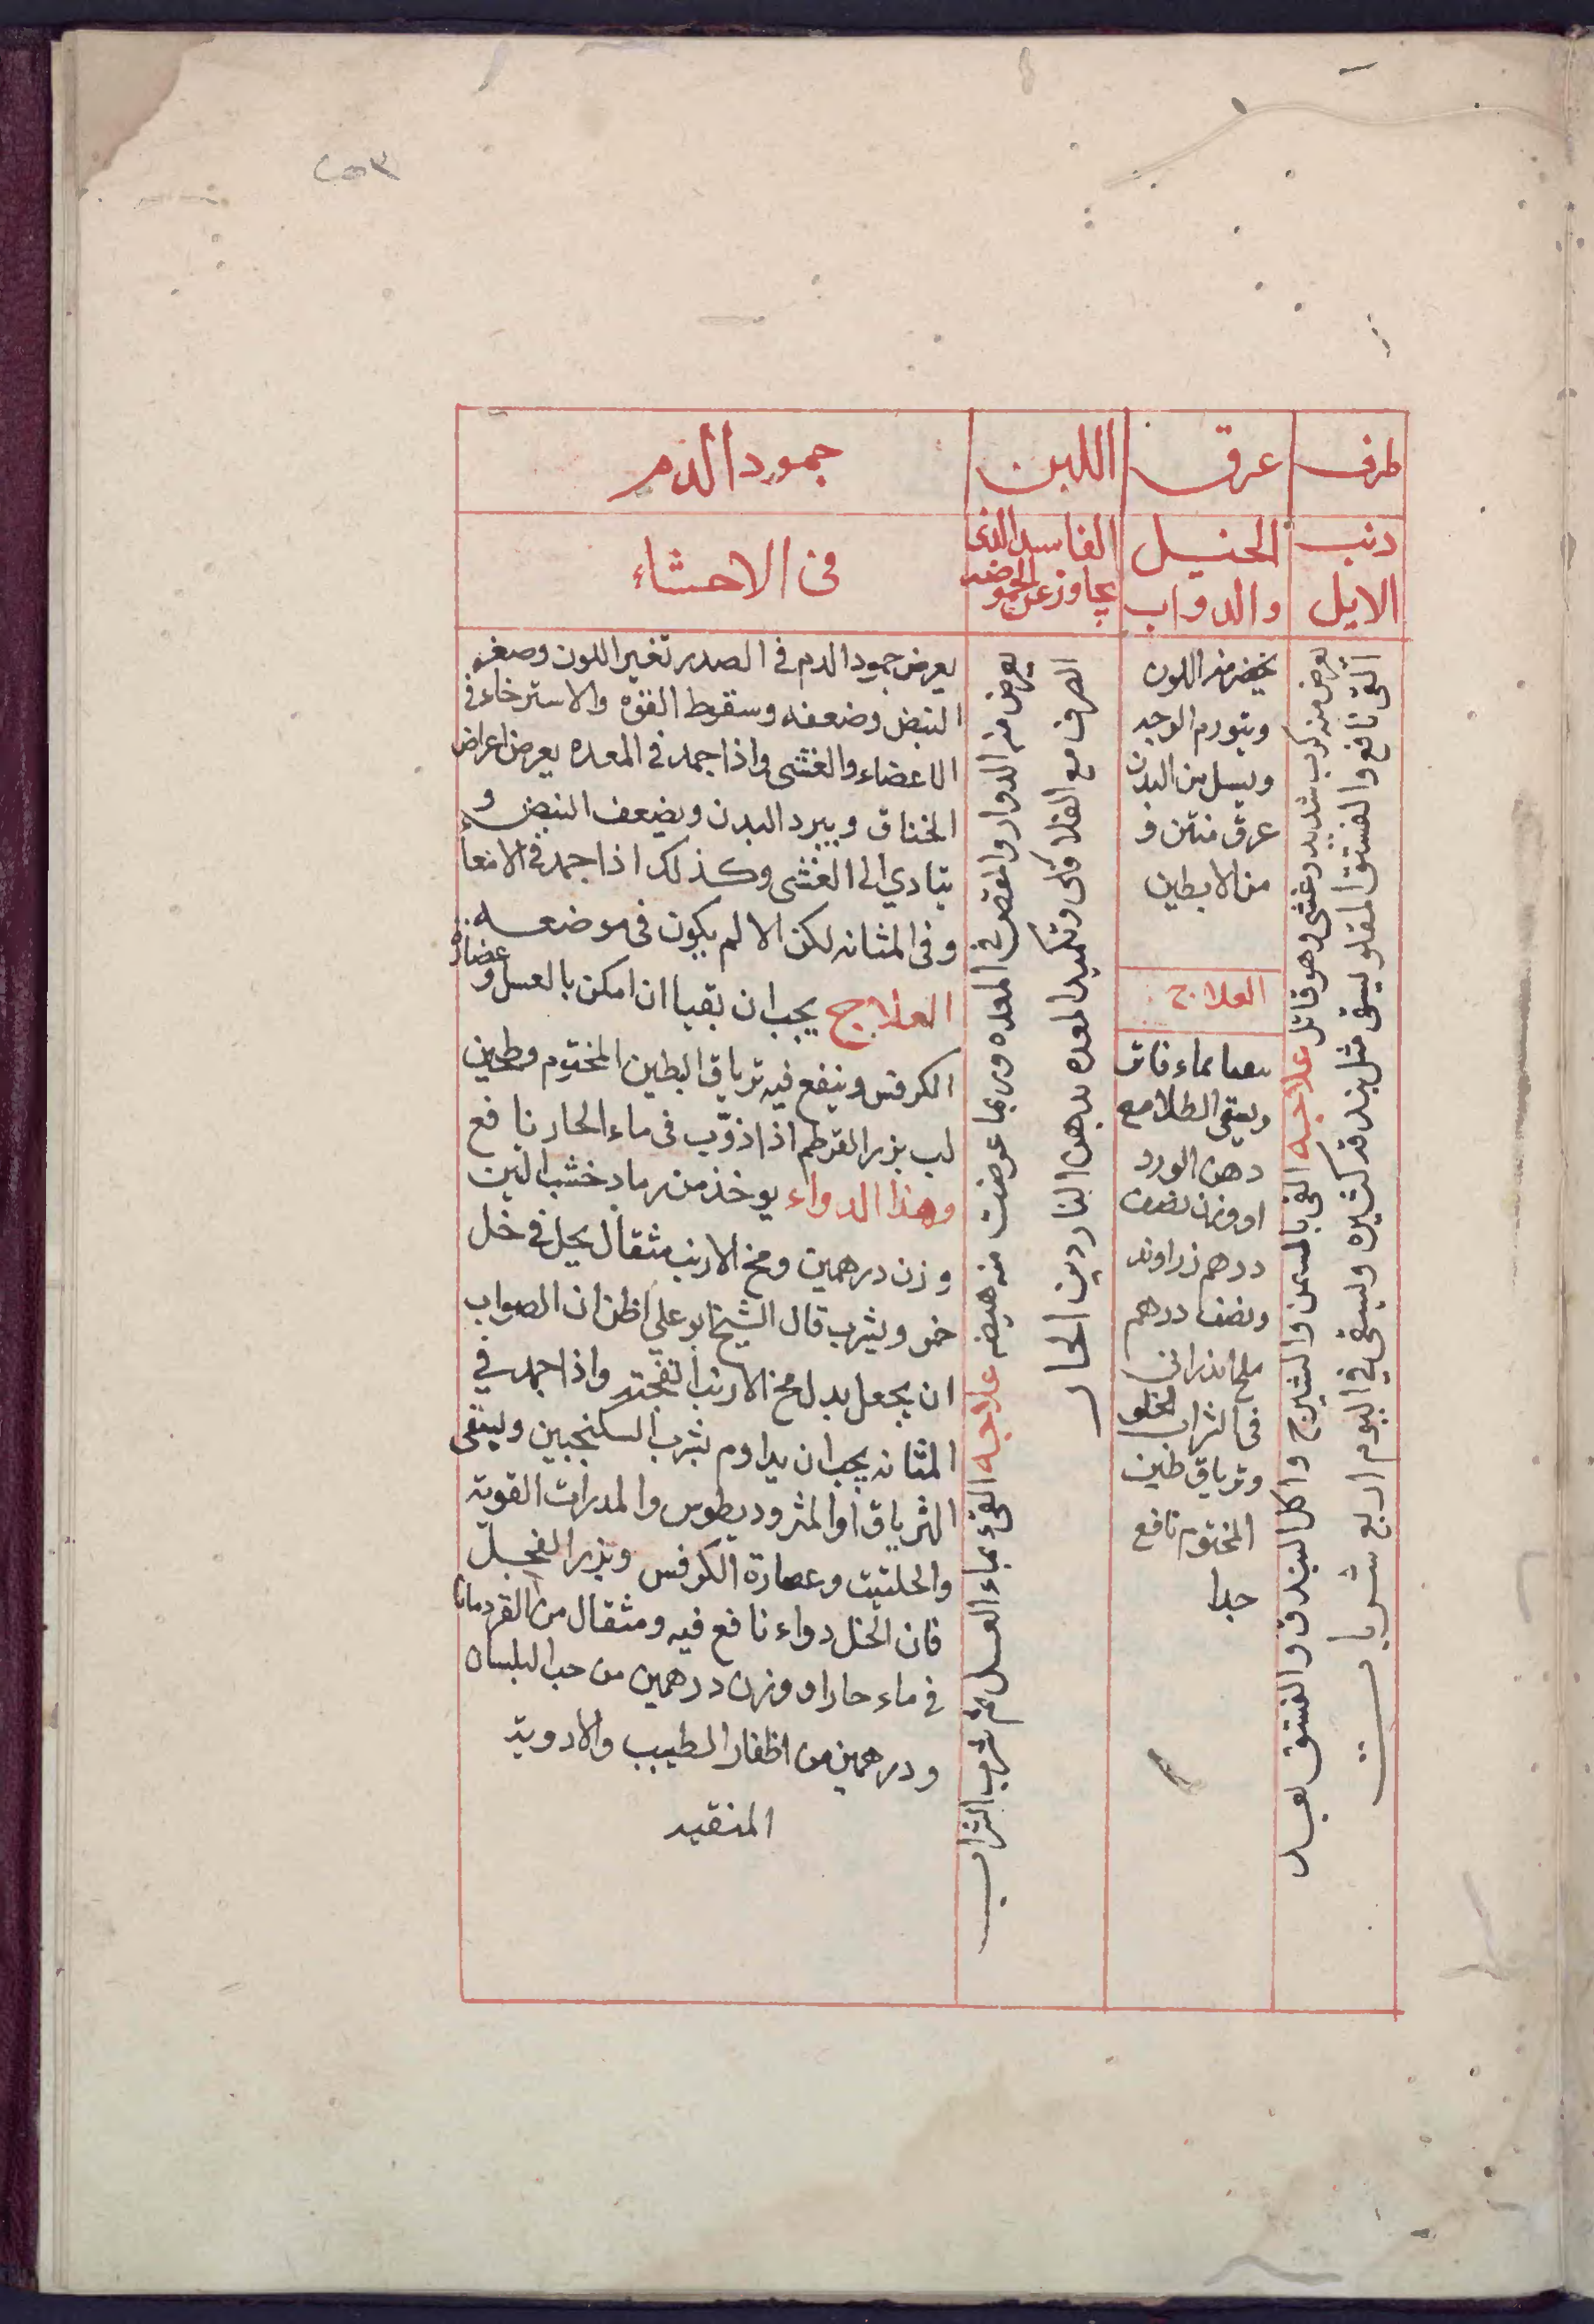 طرف
ذنب
الايل
يعرض منه كرب شديد وغشي وهو قاتل علاجه القي بالسمن والشيرج واكل البندق والفستق بعد
القي نافع والفستق المقلو يسقى مثل بندقه كثيره ويسقى في اليوم اربع شربات
عرق
الخيل
والدواب
يخضر منه اللون
ويتورم الوجه
ويسيل من البدن
عرق منتن و
من الابطين
العلاج
بماء فاتر
ويسقى الطلا مع
دهن الورد
او وزن نصف
درهم زراوند
ونصف درهم
ملح اندرانى
فى الشراب
وترياق طين
المختوم نافع
جدا
اللبن
الفاسد الذى
يجاوز عن الحموضه
يعرض منه الدوار والمغص في المعده وربما عرضت منه هيضه علاجه القيء بماء العسل ثم شرب الشراب
الصرف مع الفلافلى وتكميد المعده بدهن الناردين الحار
جمود الدم
فى الاحشاء
يعرض جمود الدم في الصدر تغير اللون وصغر
النبض وضعفه وسقوط القوه والاسترخاء في
الاعضاء والغشى واذا جمد في المعده يعرض اعراض
الخناق ويبرد البدن ويضعف النبض و
يتادي الى الغشى وكذلك اذا جمد في الامعاء
وفى المثانه لكن الالم يكون فى موضعه
العلاج يجب ان يقيا ان امكن بالعسل و عصارة
الكرفس وينفع فيه ترياق الطين المختوم وطحين
لب بزر القرطم اذا ذوّب فى ماء الحار نافع
وهذا الدواء يوخذ من رماد خشب التين
وزن درهمين ومخ الارنب مثقال يحل في خل
خمر ويشرب قال الشيخ ابو علي اظن ان الصواب
ان يجعل بدل مخ الارنب انفحته واذا جمد في
المثانه يجب ان يداوم شرب السكنجبين ويسقى
الترياق او المثروديطوس والمدرات القوية
والحلتيت وعصارة الكرفس وبزر الفجل
فان الخل دواء نافع فيه ومثقال من القردمانا
في ماء حار او وزن درهمين من حب البلسان
ودرهمين من اظفار الطيب والادوية
المنقيه